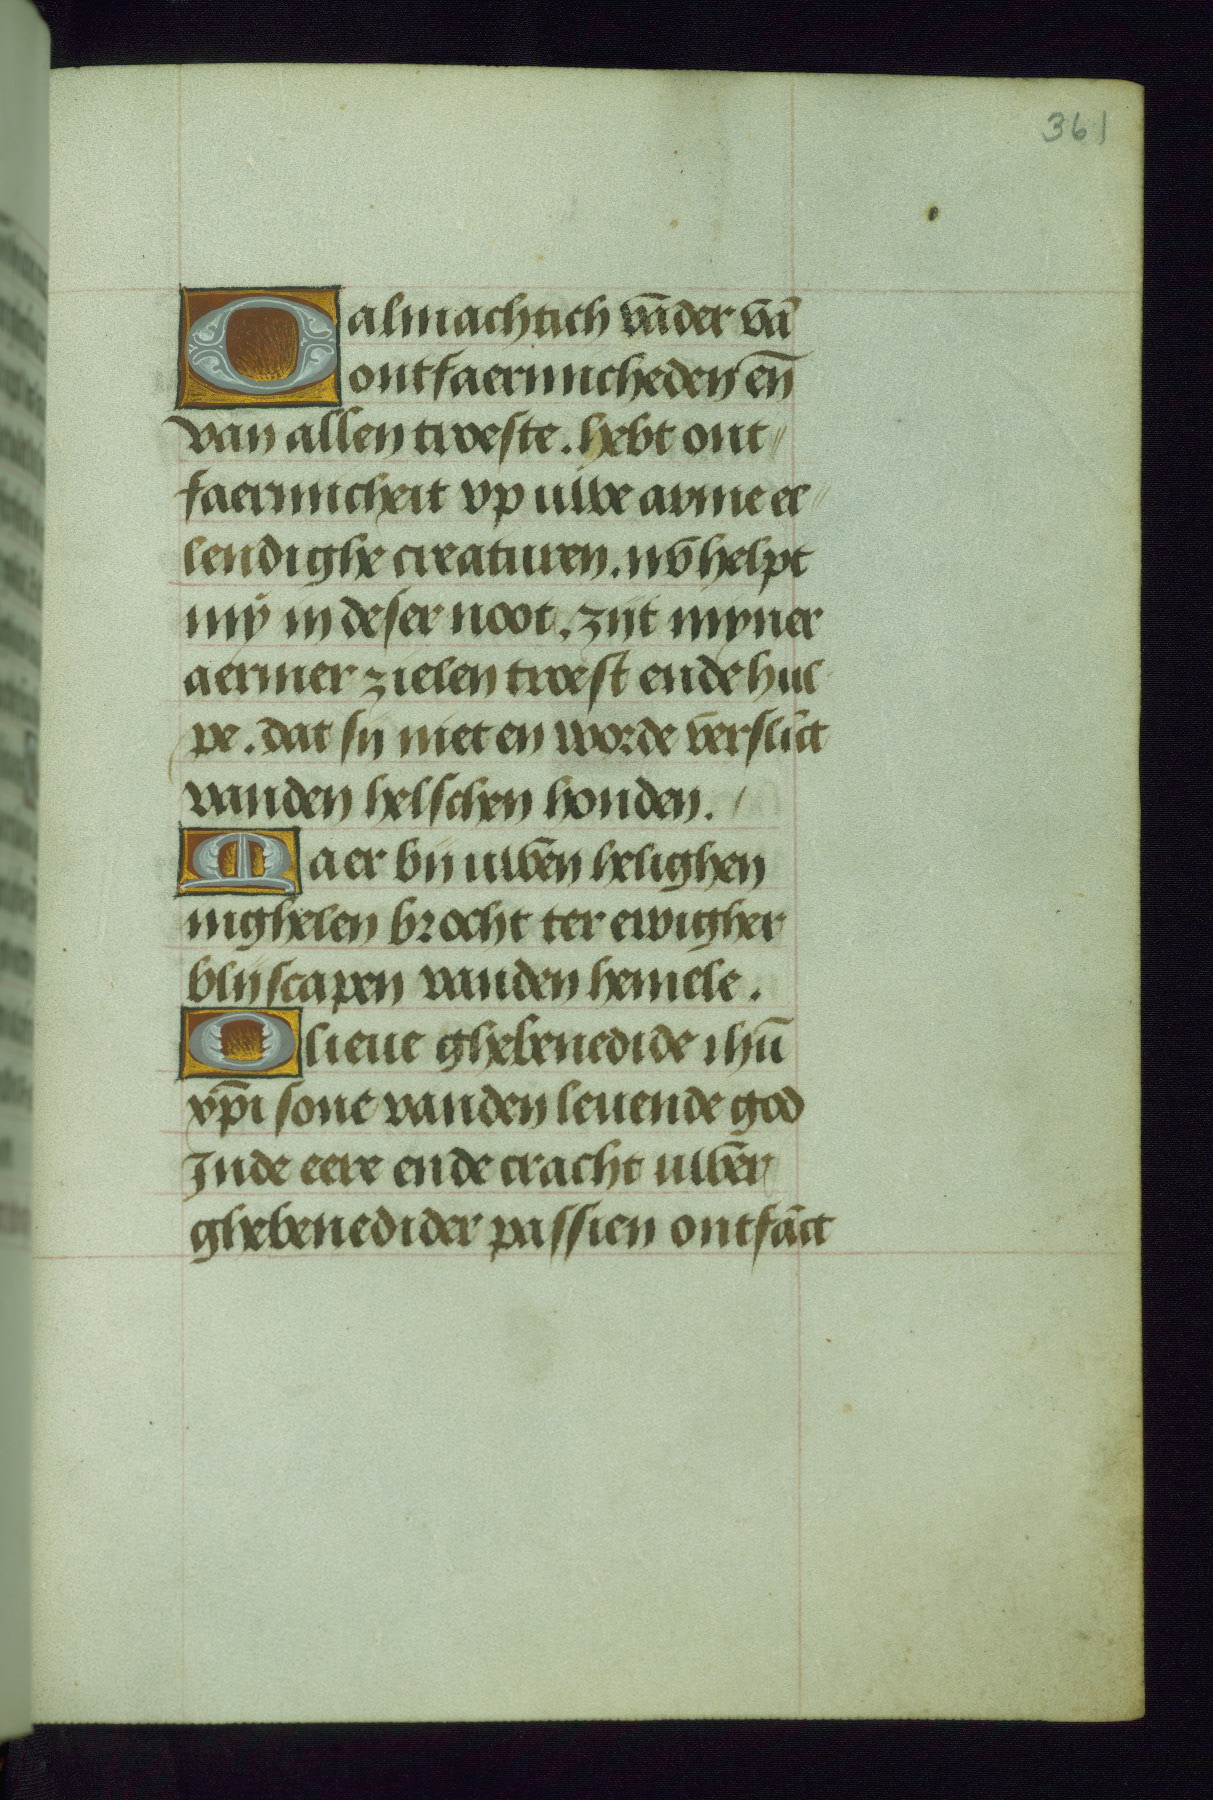 361
O almachtich vad̄er vā
ontfaermicheden en̄
van allen troeste. hebt ont〃
faermicheit vp uwe arme el〃
lendighe creaturen. nv̄ helpt
mÿ in deser noot. zijt myner
aermer zielen troest ende hul
pe. dat sij niet en worde v̄erslīct
vanden helschen honden.
Maer bij uwēn helighen
inghelen brocht ter ewigher
blijscapen vanden hemele.
O lieue ghebenedide ihū
xp̄i sone vanden leuende god
Inde eere ende cracht uwēr
ghebenedider passien ontfāct